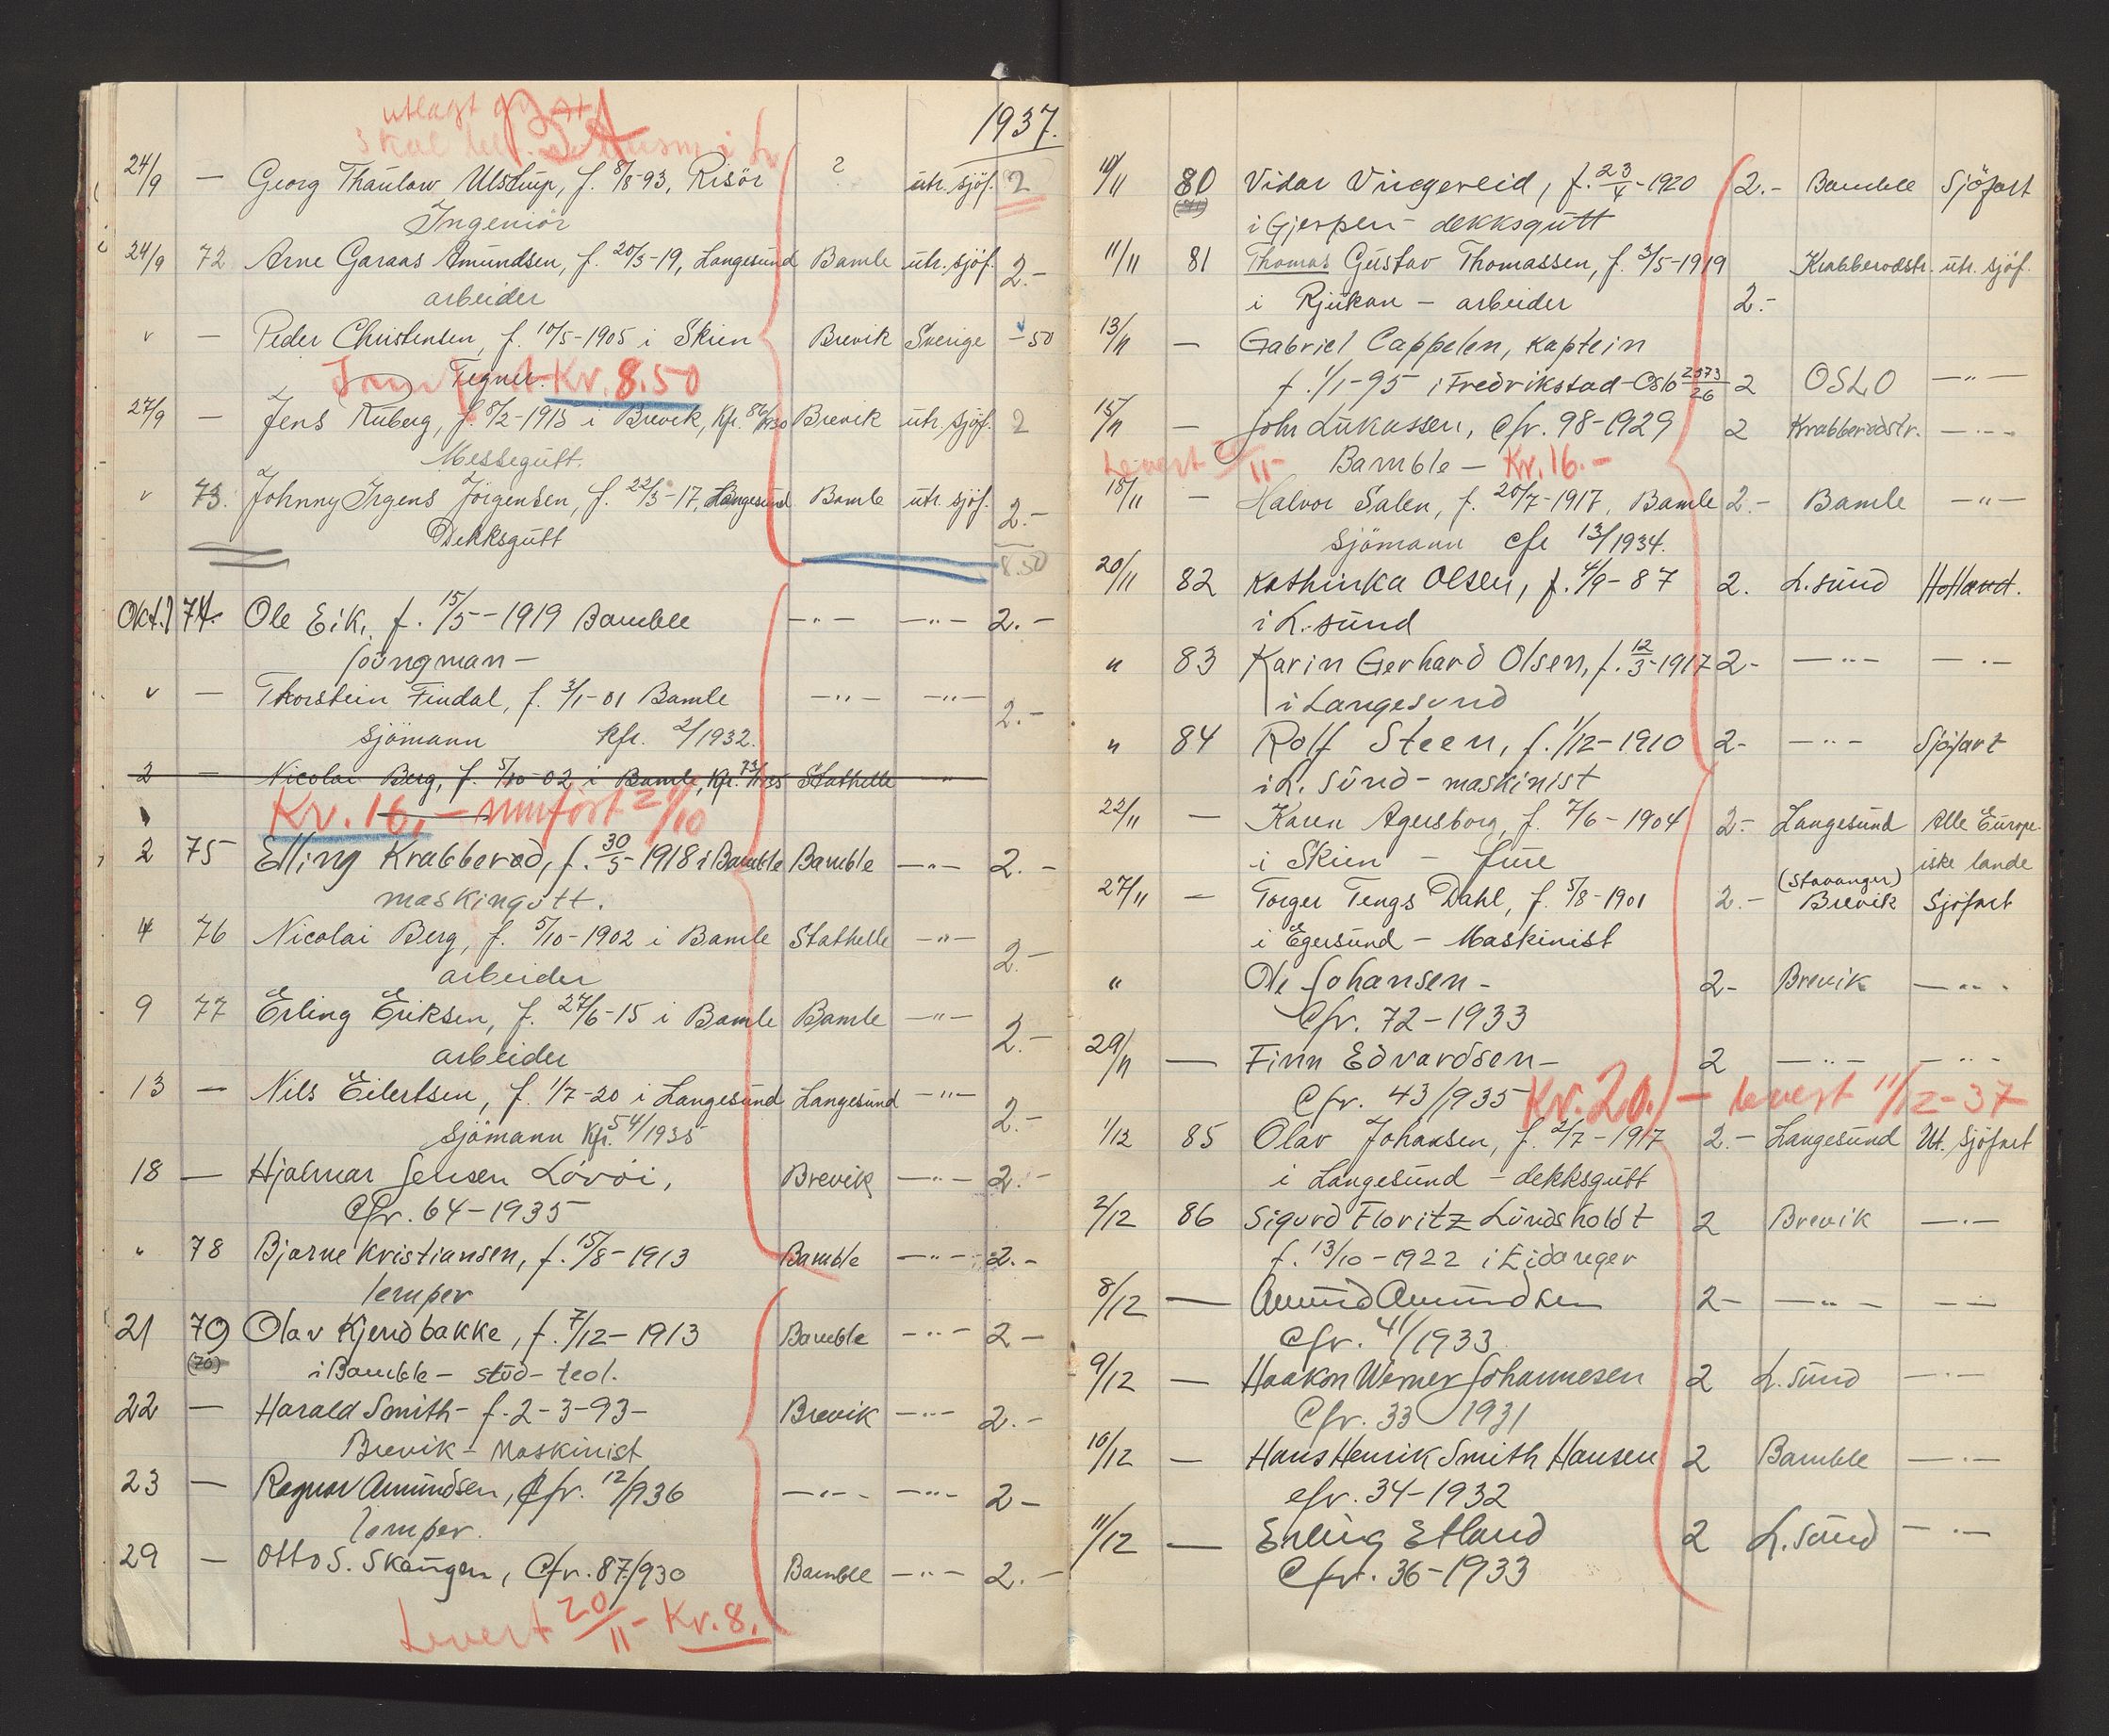 utlagt
1937.
24/9 — Georg Thaulow Ulstrup, f. 8/8-93, Risör ? utr. sjöf. 2
Ingeniör
24/9 72 Arne Garaas Amundsen, f. 20/3-19, Langesund Bamle utr. sjöf. 2.-
arbeider
v — Peder Christensen, f. 10/5-1905 i Skien Brevik Sverige -50
Tegner. Kr. 8.50
27/9 — Jens Ruberg, f. 8/2-1913 i Brevik, Kfr. 86/1930 Brevik utr. sjöf. 2
Messegutt.
v 73. Johnny Irgens Jörgensen, f. 22/3-17, Langesund Bamle utr. sjöf. 2.-
Dekksgutt 8.50
Okt. 1 74. Ole Eik, f. 15/5-1919 Bamble —"— —"— 2.-
jungman-
v — Thorstein Findal, f. 3/1-01 Bamle —"— —"— 2.-
Sjömann Kfr. 2/1932.
2 — Nicolai Berg, f. 5/10-02 i Bamle, Kfr. 73/1935 Stathelle "
Kr. 16,- innfört 21/10
2 75 Elling Krabberød, f. 30/5-1918 i Bamble Bamble —"— 2.-
maskingutt.
4 76 Nicolai Berg, f. 5/10-1902 i Bamle Stathelle —"— 2.-
arbeider
9 77 Erling Eriksen, f. 27/6-15 i Bamle Bamle —"— 2.-
arbeider
13 — Nils Eilertsen, f. 1/7-20 i Langesund Langesund —"— 2.-
Sjömann Kfr. 54/1935
18 — Hjalmar Jensen Lövöi, Brevik —"— 2.-
Cfr. 64-1935
" 78 Bjarne Kristiansen, f. 15/8-1913 Bamble —"— 2.-
lemper
21 79 Olav Kjendbakke, f. 7/12-1913 Bamble —"— 2-
(70) i Bamble - stud-teol.
22 — Harald Smith- f. 2-3-93- Brevik —"— 2.-
Brevik - Maskinist
23 — Ragnar Amundsen, Cfr. 12/936 —"— —"— 2-
lemper.
29 — Otto S. Skaugen, Cfr. 87/930 Bamble —"— 2.-
Levert 20/11- Kr. 8.
10/11 80 Vidar Vingereid, f. 23/4-1920 2.- Bamble Sjöfart
i Gjerpen- dekksgutt
11/11 81 Thomas Gustav Thomassen, f. 3/5-1919 Krabberødstr. utr. sjöf.
i Rjukan - arbeider 2.-
13/11 — Gabriel Cappelen, kaptein
f. 1/1-95 i Fredrikstad-Oslo 2573/26 2 OSLO —"—
15/11 — John Lukassen, Cfr. 98-1929 2 Krabberødstr. —"—
Levert /11- Bamble - Kr. 16.-
18/11 — Halvor Salen, f. 20/7-1917, Bamle 2.- Bamle —"—
Sjömann cfr 13/1934.
20/11 82 Kathinka Olsen, f. 4/9-87 2. L.sund Holland.
i L.sund
" 83 Karin Gerhard Olsen, f. 12/3-1917 2- —"— —"—
i Langesund
" 84 Rolf Steen, f. 1/12-1910 2- —"— Sjöfart
i L.sund - maskinist
22/11 — Karen Agersborg, f. 7/6-1904 2.- Langesund Alle Europe-
i Skien - frue iske lande
27/11 — Torger Tengs Dahl, f. 5/8-1901 2.- (Stavanger) Brevik Sjöfart
i Egersund - Maskinist
" Ole Johansen- 2- Brevik —"—
Cfr. 72-1933
29/11 — Finn Edvardsen- 2 —"— —"—
Cfr. 43/1935 Kr. 20.- levert 11/12-37
1/12 85 Olav Johansen, f. 2/7-1917 2.- Langesund Ut. Sjöfart
i Langesund - dekksgutt
2/12 86 Sigurd Floritz Lundsholdt 2 Brevik —"—
f. 13/10-1922 i Eidanger
8/12 — Amund Amundsen 2- —"— —"—
Cfr. 41/1933
9/12 — Haakon Werner Johannesen 2 L.sund —"—
Cfr. 33 1931
10/12 — Hans Henrik Smith Hansen 2 Bamble —"—
cfr. 34-1932
11/12 — Erling Etland 2 L.sund —"—
Cfr. 36-1933